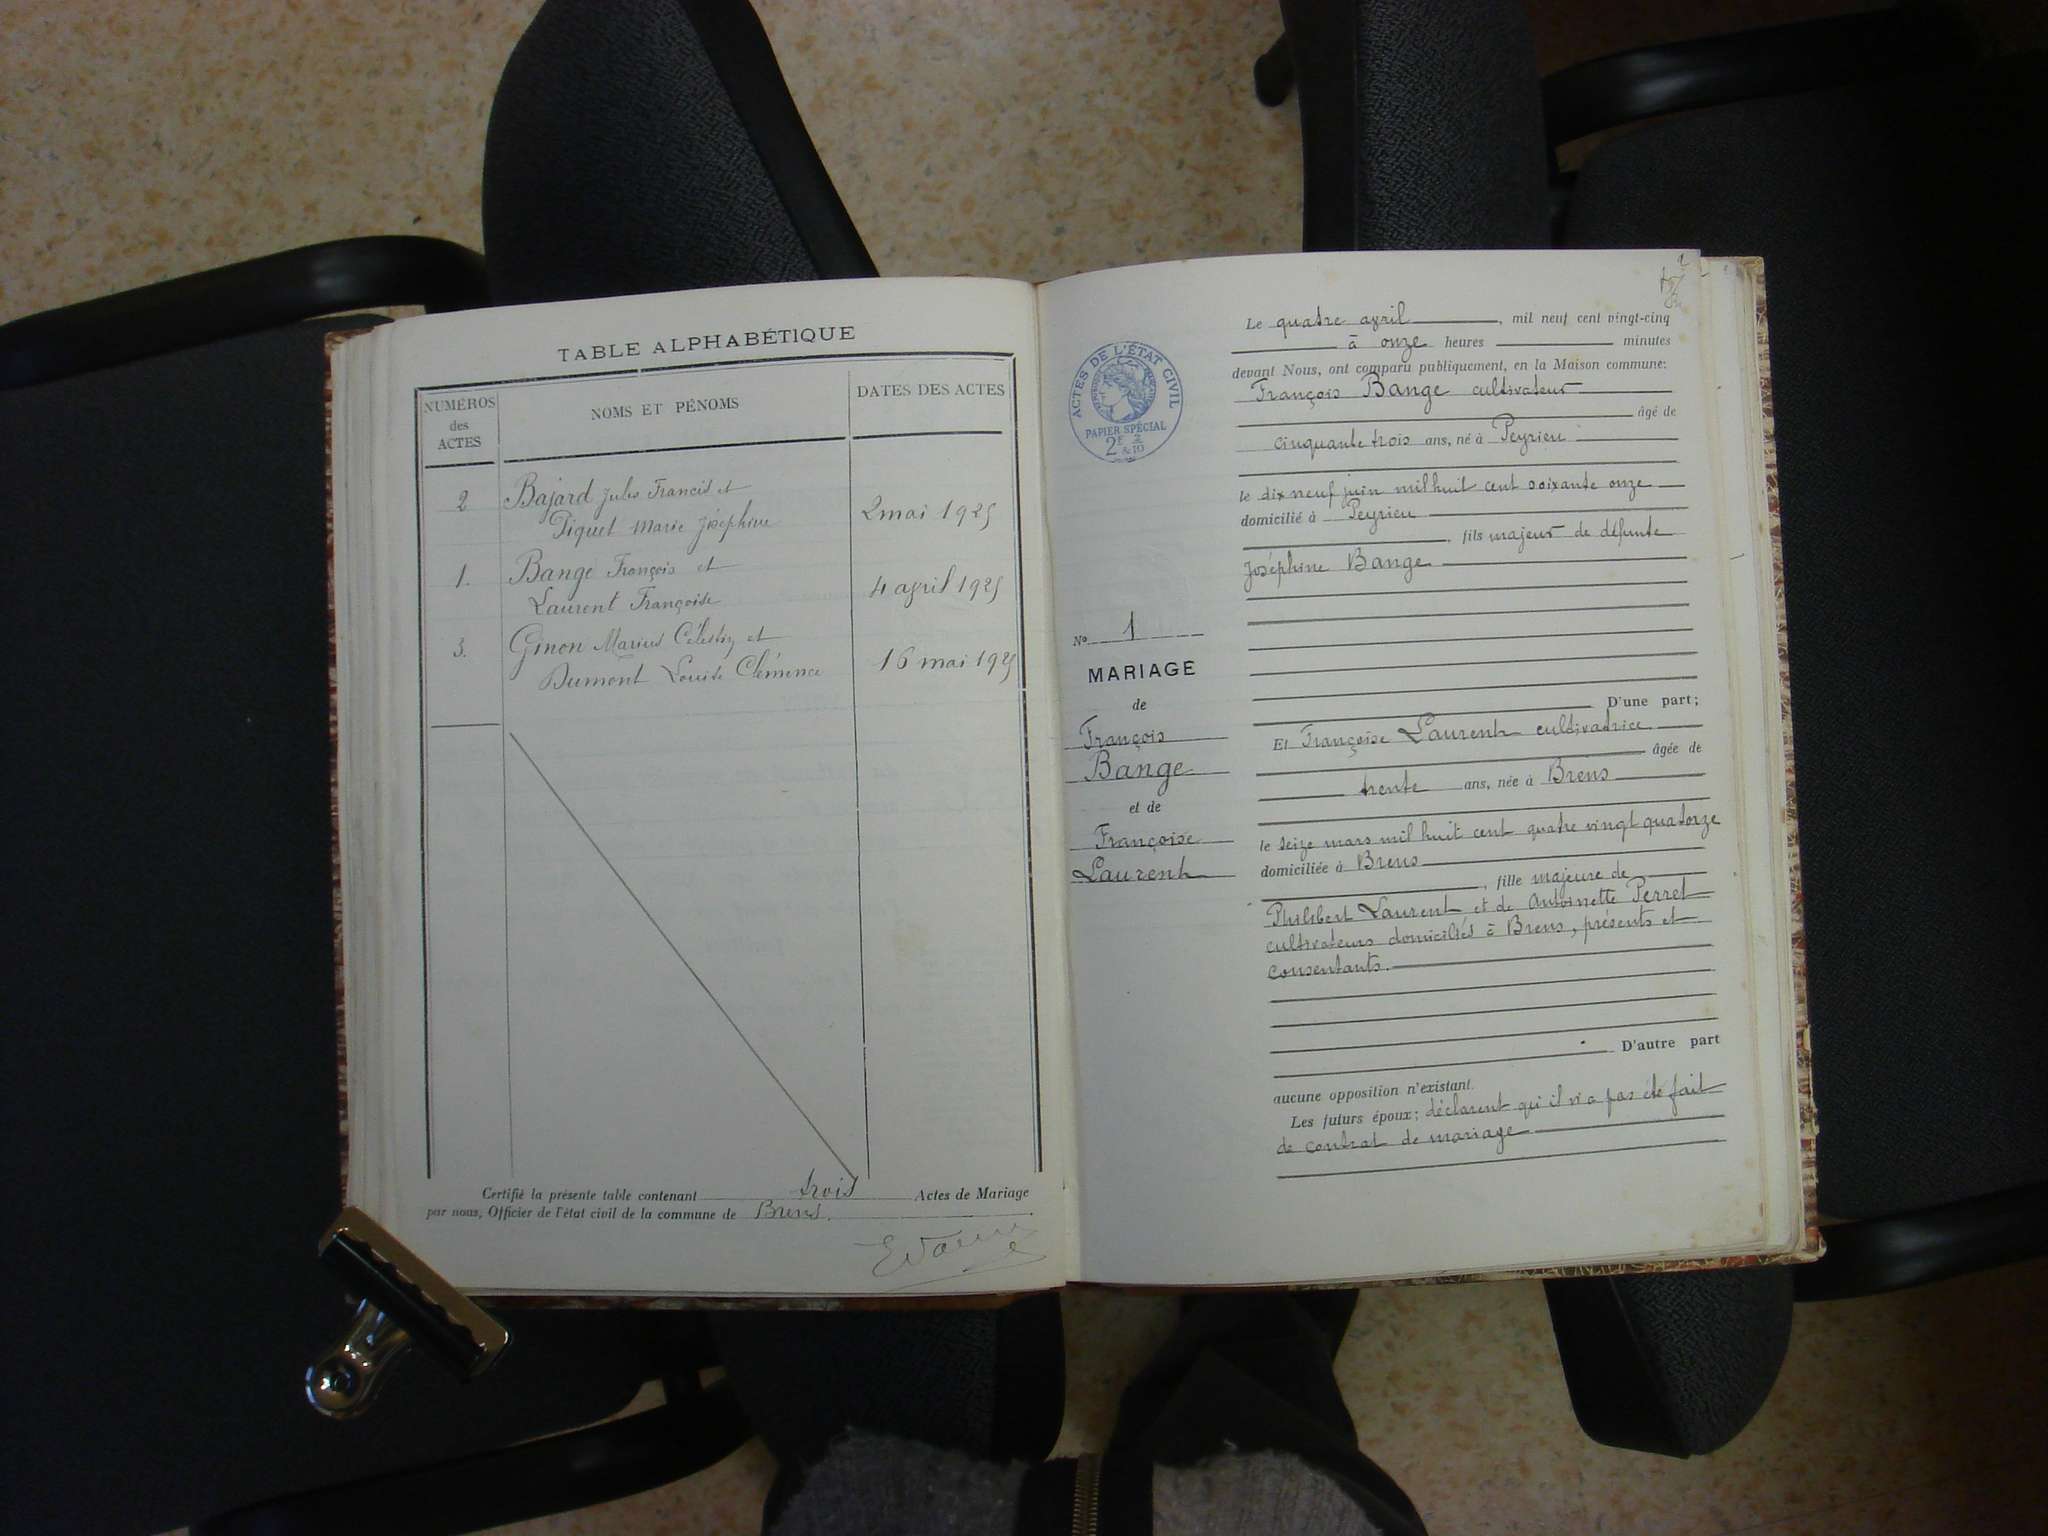 TABLE ALPHABÉTIQUE
NUMÉROS des ACTES
NOMS ET PÉNOMS
DATES DES ACTES
2 Bajard Jules Francis et
Piquet Marie Joséphine 2 mai 1925
1. Bange François et
Laurent Françoise 4 april 1925
3. Ginon Marius Célestin et
Dumont Louise Clémence 16 mai 1925
Certifié la présente table contenant trois Actes de Mariage
par nous, Officier de l'état civil de la commune de Brens.
ACTES DE L'ÉTAT CIVIL
PAPIER SPÉCIAL
2F & 2/10
No 1
MARIAGE
de
François
Bange
et de
Françoise
Laurent
Le quatre april, mil neuf cent vingt-cinq
à onze heures minutes
devant Nous, ont comparu publiquement, en la Maison commune:
François Bange cultivateur
âgé de
cinquante trois ans, né à Peyrieu
le dix neuf juin mil huit cent soixante onze
domicilié à Peyrieu
, fils majeur de défunte
Joséphine Bange
D'une part;
Et Françoise Laurent cultivatrice
âgée de
trente ans, née à Brens
le seize mars mil huit cent quatre vingt quatorze
domiciliée à Brens
, fille majeure de
Philibert Laurent et de Antoinette Perret
cultivateurs domiciliés à Brens, présents et
consentants.
D'autre part
aucune opposition n'existant.
Les futurs époux; déclarent qui il n'a pas été fait
de contrat de mariage